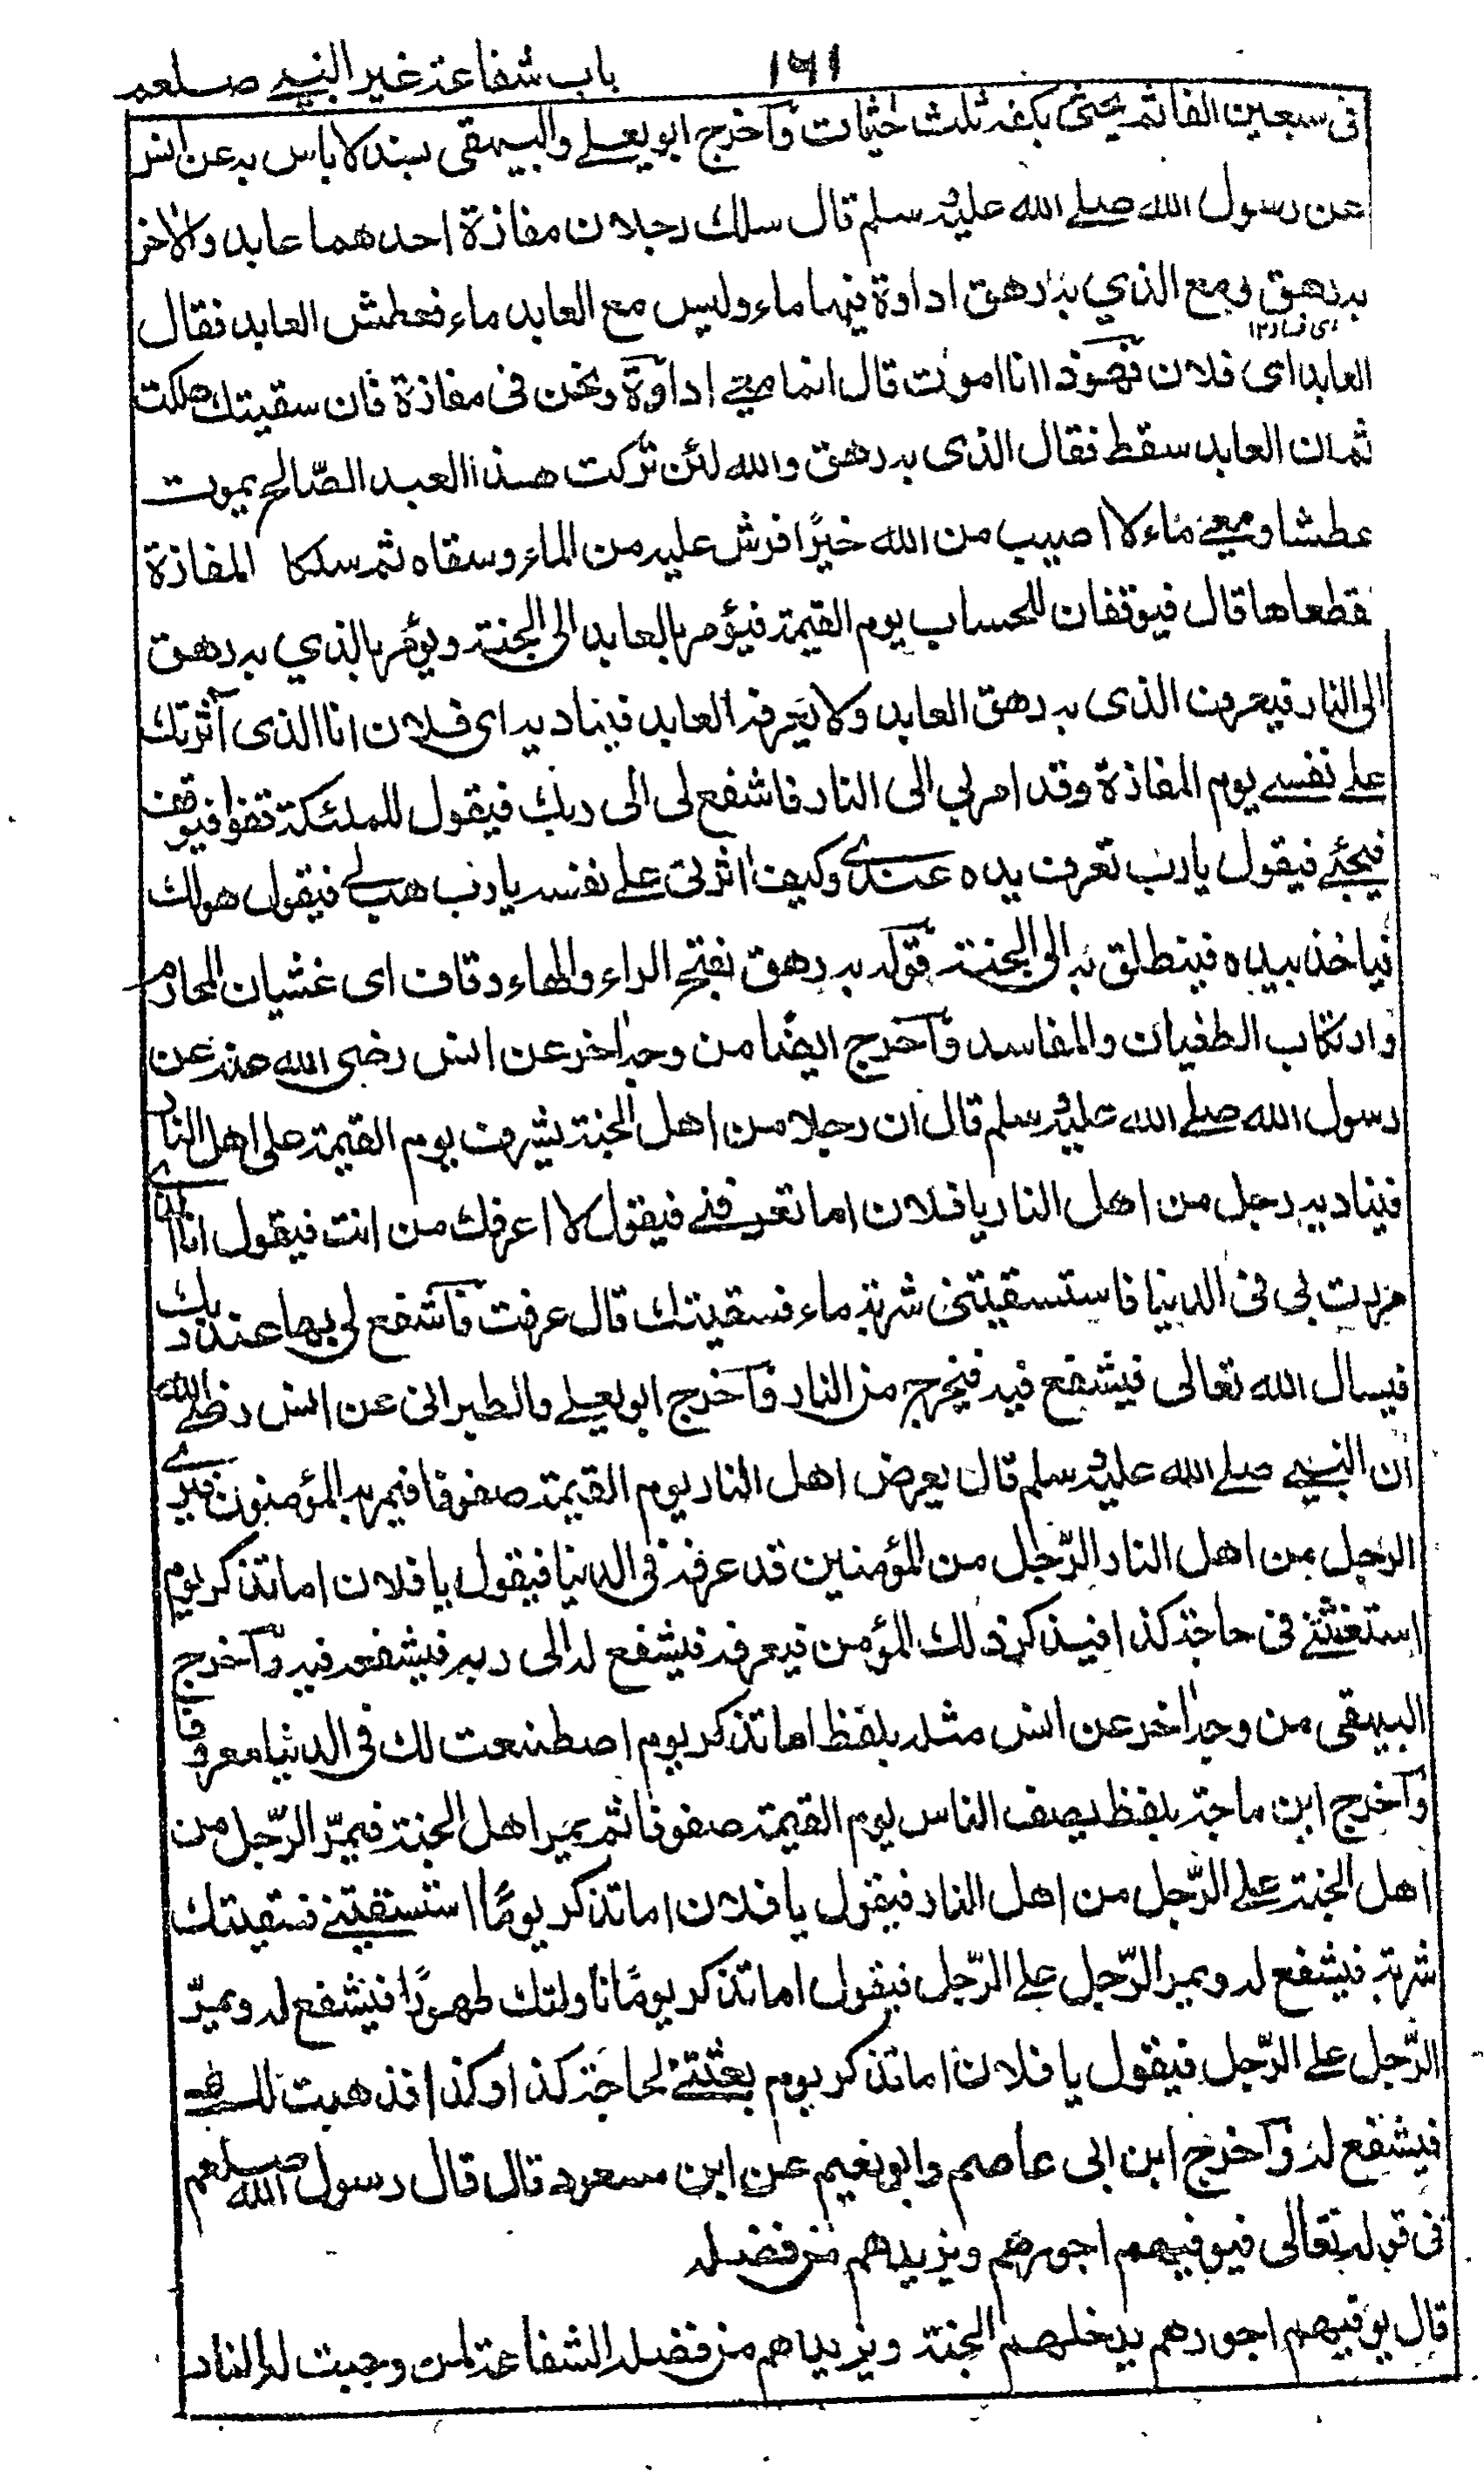 باب شفاعة غير النبي صلعم ١٦١
في سبعين الفا ثم يحثي بكفه ثلث حثيات وآخرج ابو يعلى والبيهقي بسند لا باس به عن انس
عن رسول الله صلى الله عليه وسلم قال سلك رجلان مفازة احدهما عابد والاخر
به رهق ومع الذي به رهق اداوة فيها ماء وليس مع العابد ماء فعطش العابد فقال
اى فساد ١٢
العابد اى فلان فهوذا انا اموت قال انما معي اداوة ونحن في مفازة فان سقيتك هلكت
ثم ان العابد سقط فقال الذى به رهق والله لئن تركت هذا العبد الصّالح يموت
عطشا ومعي ماء لا اصيب من الله خيرًا فرش عليه من الماء وسقاه ثم سلكا المفازة
فقطعاها قال فيوقفان للحساب يوم القيمة فيؤمر بالعابد الى الجنة ويؤمر بالذي به رهق
الى النار فيعرف الذى به رهق العابد ولا يعرفه العابد فيناديه اى فلان انا الذى آثرتك
على نفسي يوم المفازة وقد امر بي الى النار فاشفع لى الى ربك فيقول للملئكة قفوا فيوقف
فيجئ فيقول يا رب تعرف يده عندي وكيف اثرني على نفسه يا رب هبه لي فيقول هو لك
فياخذ بيده فينطلق به الى الجنة قوله به رهق بفتح الراء والهاء وقاف اى غشيان المحارم
وارتكاب الطغيان والمفاسد وآخرج ايضًا من وجه اخر عن انس رضى الله عنه عن
رسول الله صلى الله عليه وسلم قال ان رجلا من اهل الجنة يشرف يوم القيمة على اهل النار
فيناديه رجل من اهل النار يا فلان اما تعرفني فيقول لا اعرفك من انت فيقول انا الذي
مررت بى فى الدنيا فاستسقيتني شربة ماء فسقيتك قال عرفت فآشفع لى بها عند ربك
فيسال الله تعالى فيشفع فيه فيخرج من النار وآخرج ابو يعلى والطبرانى عن انس رضى الله
ان النبي صلى الله عليه وسلم قال يعرض اهل النار يوم القيمة صفوفا فيمر به المؤمنون فيرى
الرجل من اهل النار الرّجل من المؤمنين قد عرفه في الدنيا فيقول يا فلان اما تذكر يوم
استغثتني فى حاجة كذا فيذكر ذلك المؤمن فيعرفه فيشفع له الى ربه فيشفعه فيه وآخرج
البيهقي من وجه اخر عن انس مثله بلفظ اما تذكر يوم اصطنعت لك فى الدنيا معروفا
وآخرج ابن ماجة بلفظ يصف الناس يوم القيمة صفوفا ثم يمر اهل الجنة فيمرّ الرّجل من
اهل الجنة على الرّجل من اهل النار فيقول يا فلان اما تذكر يومًا استسقيتني فسقيتك
شربة فيشفع له ويمر الرّجل على الرّجل فيقول اما تذكر يومًا ناولتك طهورًا فيشفع له ويمرّ
الرّجل على الرّجل فيقول يا فلان اما تذكر يوم بعثتني لحاجة كذا وكذا فذهبت لك
فيشفع له وآخرج ابن ابى عاصم وابو نعيم عن ابن مسعود قال قال رسول الله صلعم
فى قوله تعالى فيوفيهم اجورهم ويزيدهم من فضله
قال يوفيهم اجورهم يدخلهم الجنة ويزيدهم من فضله الشفاعة لمن وجبت له النار